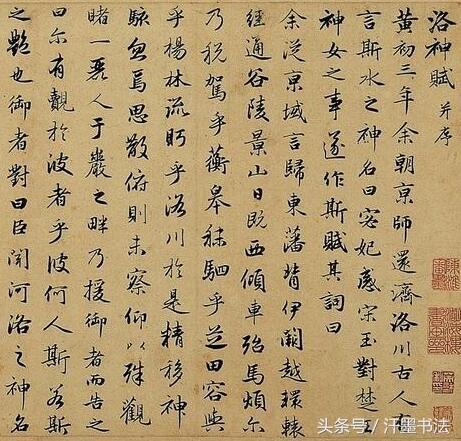 洛神賦 并序
黃初三年余朝京師還濟洛川古人有
言斯水之神名曰宓妃感宋玉對楚王
神女之事遂作斯賦其詞曰
余從京域言歸東藩背伊闕越轘轅
經通谷陵景山日既西傾車殆馬煩尔
乃稅駕乎蘅皋秣駟乎芝田容與
乎楊林流眄乎洛川於是精移神
駭忽焉思散俯則未察仰以殊觀
睹一麗人于巖之畔乃援御者而告之
曰尔有覿於彼者乎彼何人斯若斯
之豔也御者對曰臣聞河洛之神名
头条号 / 汗墨书法